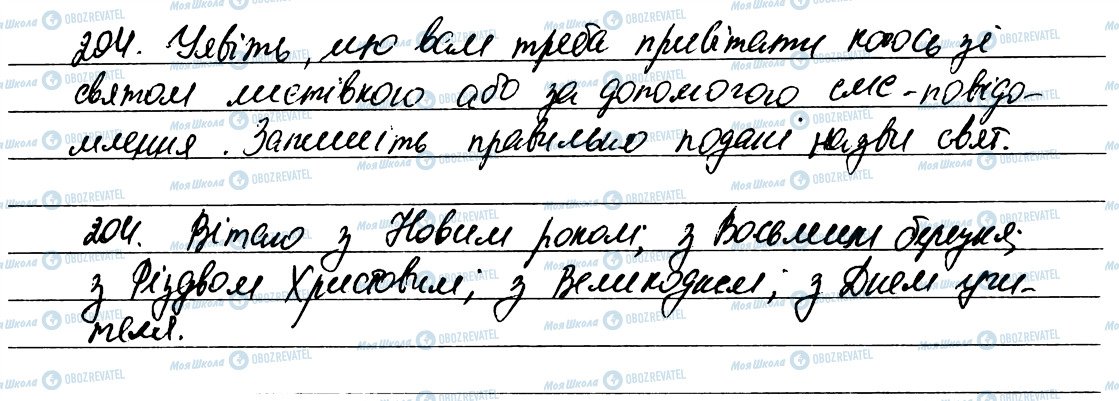 204. Уявіть, що вам треба привітати когось зі
святом листівкою або за допомогою смс-повідо-
млення. Запишіть правильно подані назви свят.
204. Вітаю з Новим роком; з Восьмим березня;
з Різдвом Христовим; з Великоднем; з Днем учи-
теля.